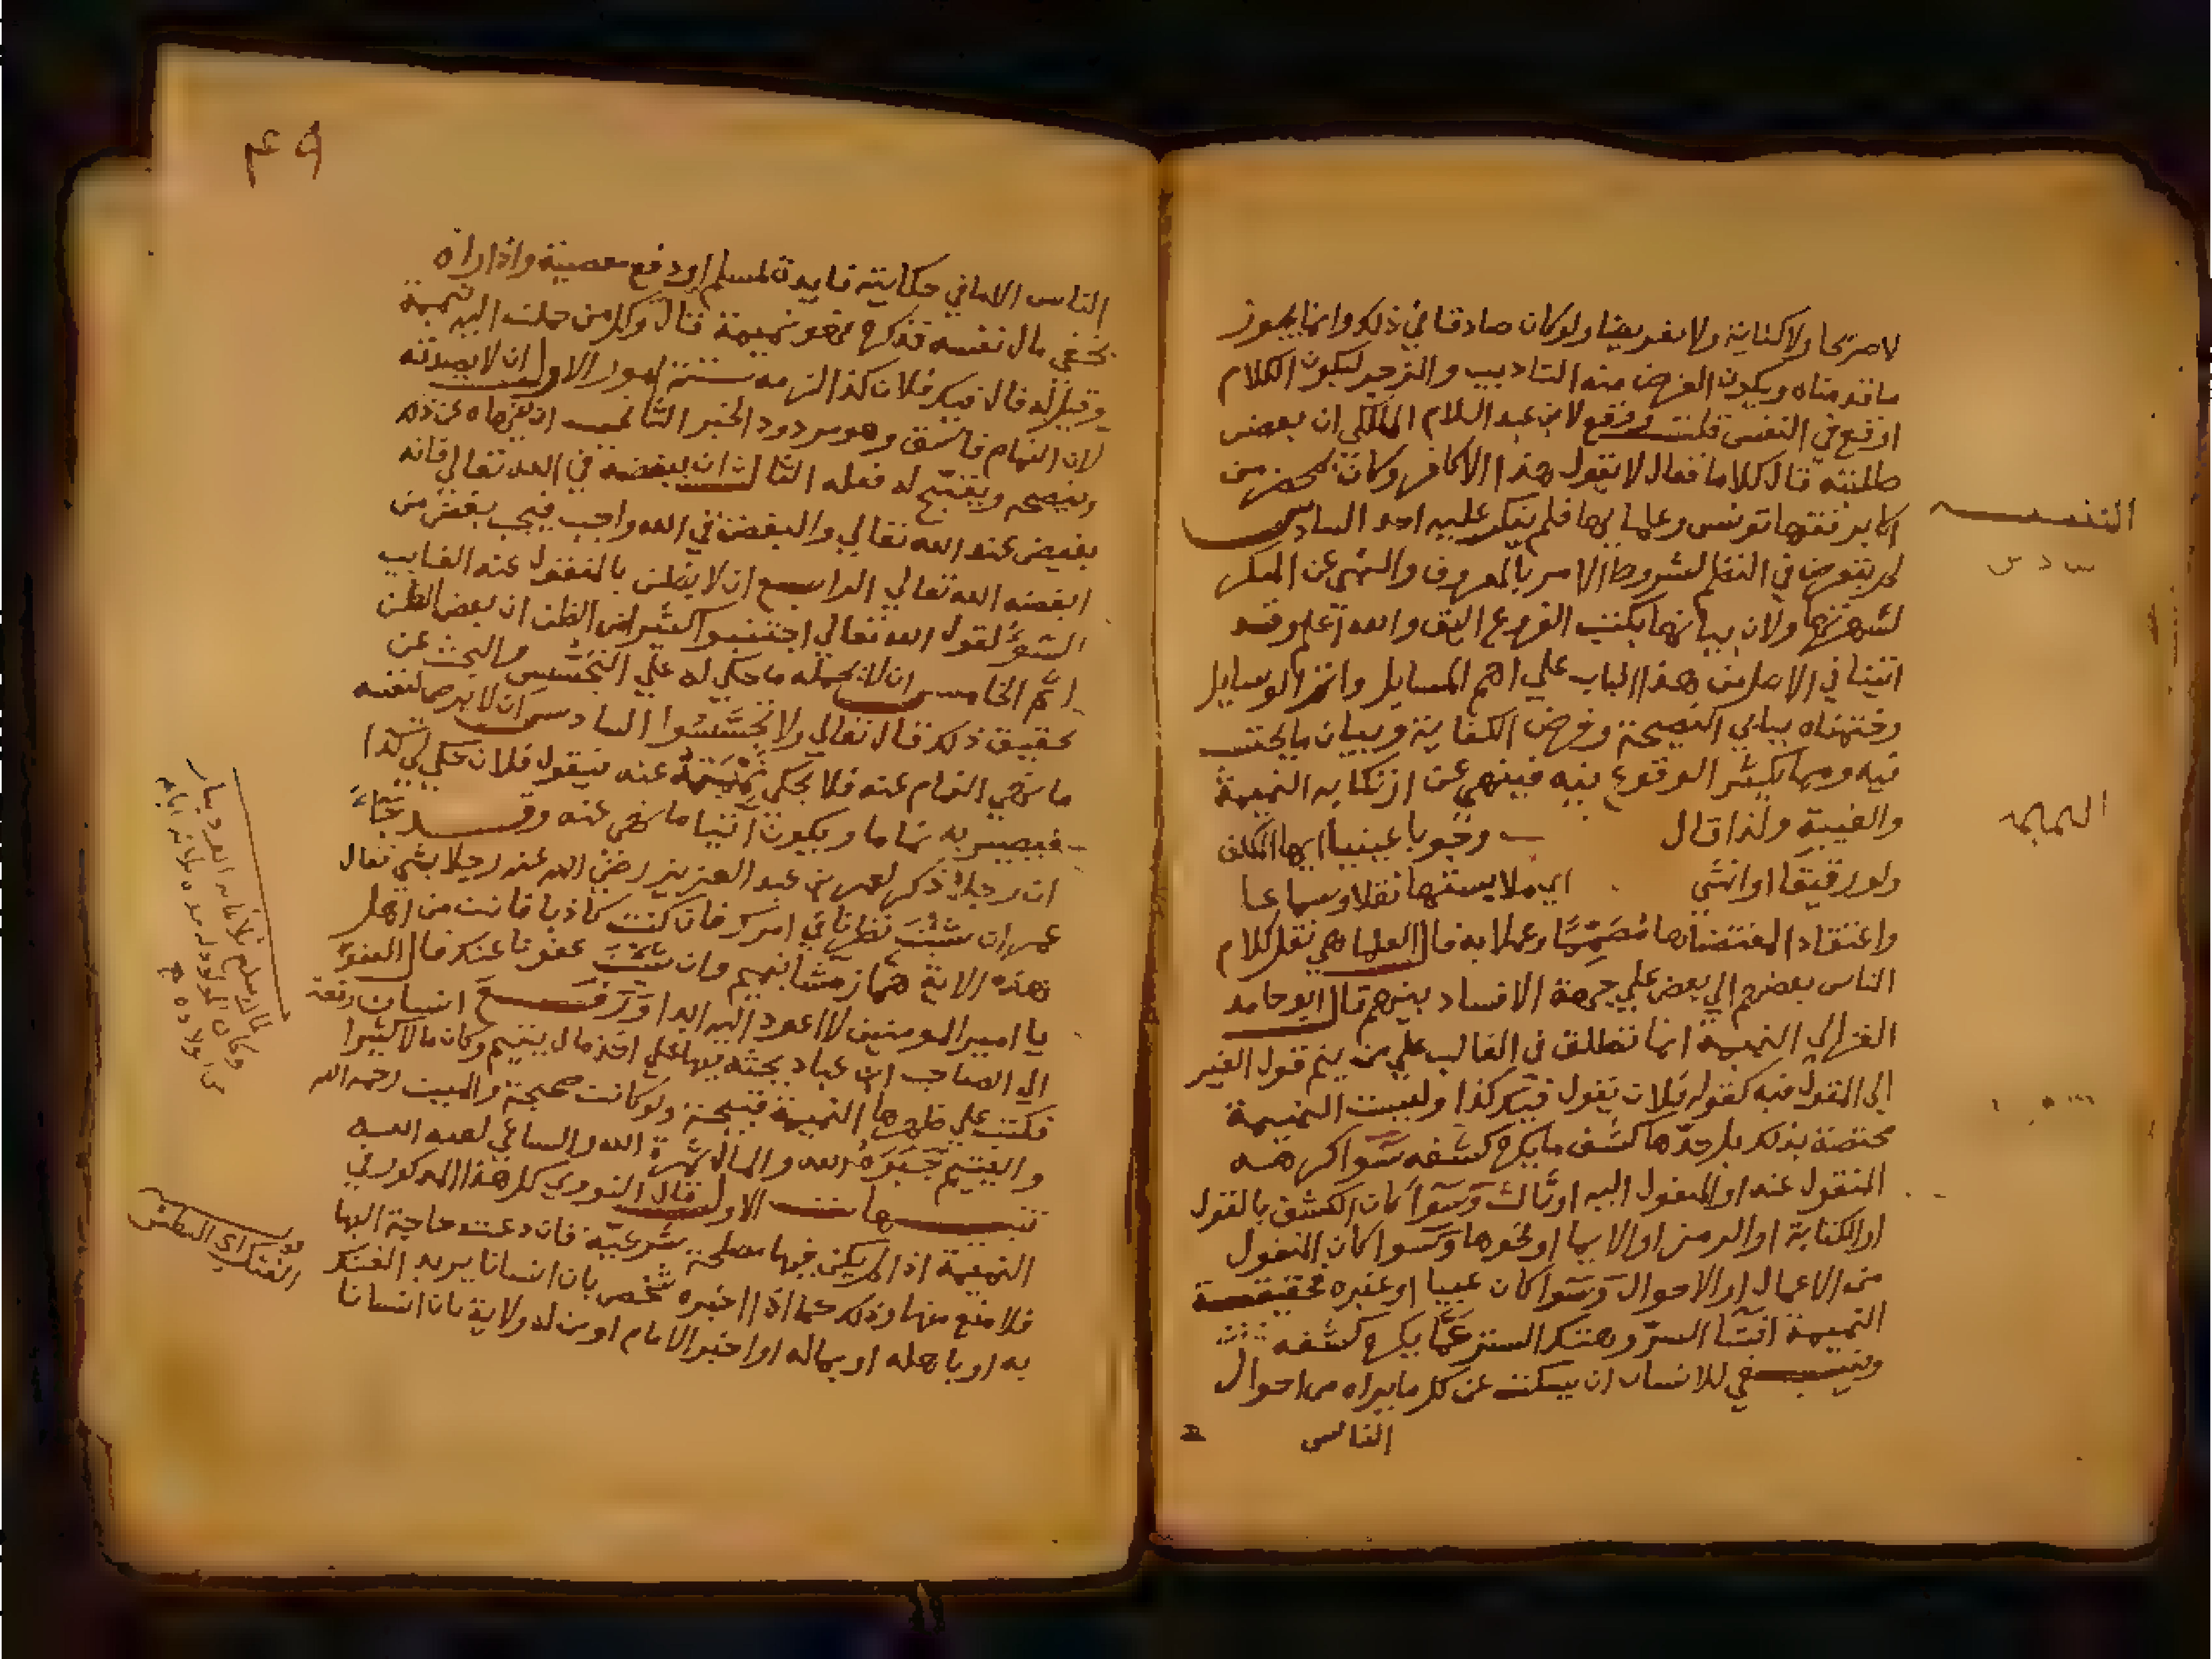 لا صريحا ولا كناية ولا تعريضا ولو كان صادقا في ذلك وانما يجوز
ما قدمناه ويكون الغرض منه التاديب والزجر ليكون الكلام
اوقع في النفس قلت وقع لابن عبد السلام المالكي ان بعض
طلبته قال كلاما فقال لا يقول هذا الا كافر وكان بمحضر من
اكابر فقها تونس وعلمايها فلم ينكر عليه احد السادس
لم يتعرض في النظم لشروط الامر بالمعروف والنهي عن المنكر
لشهرتها ولان بيانها بكتب الفروع اليق والله اعلم وقد
اتينا في الاصل من هذا الباب على اهم المسايل واتم الوسايل
وختمناه ببيان النصيحة وفرض الكفاية وبيان ما يجتنب
فيه ومما يكثر الوقوع فيه فينهى عن ارتكابه النميمة
والغيبة ولذا قال وجوبا عينيا ايها المكلف
ولو رقيقا او انثى اي ملابستها نقلا وسماعا
واعتقادا لمقتضاها وعملا به قال العلما هي نقل كلام
الناس بعضهم الى بعض على جهة الافساد بينهم قال ابو حامد
الغزالي النميمة انما تطلق في الغالب على من ينم قول الغير
الى المقول فيه كقوله فلان يقول فيك كذا وليست النميمة
مختصة بذلك بل حدها كشف ما يكره كشفه سوا كرهه
المنقول عنه او المنقول اليه او ثالث وسوا كان الكشف بالقول
او الكتابة او الرمز او الايما او نحوها وسوا كان المنقول
من الاعمال او الاحوال وسوا كان عيبا او غيره فحقيقة
النميمة افشا السر وهتك الستر عما يكره كشفه
وينبغي للانسان ان يسكت عن كل ما يراه من احوال
الناس
٤٩
الناس الا ما في حكايته فايدة لمسلم او دفع معصية واذا راه
يخفي مال نفسه فذكره فهو نميمة قال وكل من حملت اليه نميمة
وقيل له قال فيك فلان كذا لزمه ستة امور الاول ان لا يصدقه
لان النمام فاسق وهو مردود الخبر الثاني ان ينهاه عن ذلك
وينصحه ويقبح له فعله الثالث ان يبغضه في الله تعالى فانه
بغيض عند الله تعالى والبغض في الله واجب فيجب بغض من
ابغضه الله تعالى الرابع ان لا يظن بالمنقول عنه الغايب
السوء لقول الله تعالى اجتنبوا كثيرا من الظن ان بعض الظن
اثم الخامس ان لا يحمله ما حكي له على التجسس والبحث عن
تحقيق ذلك قال تعالى ولا تجسسوا السادس ان لا يرضى لنفسه
ما نهى النمام عنه فلا يحكي نميمة عنه فيقول فلان حكى لي كذا
فيصير به نماما ويكون اتيا ما نهى عنه وقد جاء
ان رجلا ذكر لعمر بن عبد العزيز رضي الله عنه رجلا بشي فقال
عمر ان شئت نظرنا في امرك فان كنت كاذبا فانت من اهل
هذه الاية هماز مشا بنميم وان شئت عفونا عنك فقال العفو
يا امير المومنين لا اعود اليه ابدا ورفع انسان رقعة
الى الصاحب ابن عباد يحثه فيها على اخذ مال يتيم وكان مالا كثيرا
فكتب على ظهرها النميمة قبيحة ولو كانت صحيحة والميت رحمه الله
واليتيم جبره الله والمال ثمره الله والساعي لعنه الله
تنبيهات الاول قال النووي كل هذا المذكور في
النميمة اذا لم يكن فيها مصلحة شرعية فان دعت حاجة اليها
فلا منع منها وذلك كما اذا اخبره شخص بان انسانا يريد الفتك
به او باهله او بماله او اخبر الامام او من له ولاية بان انسانا
الفتك اي البطش